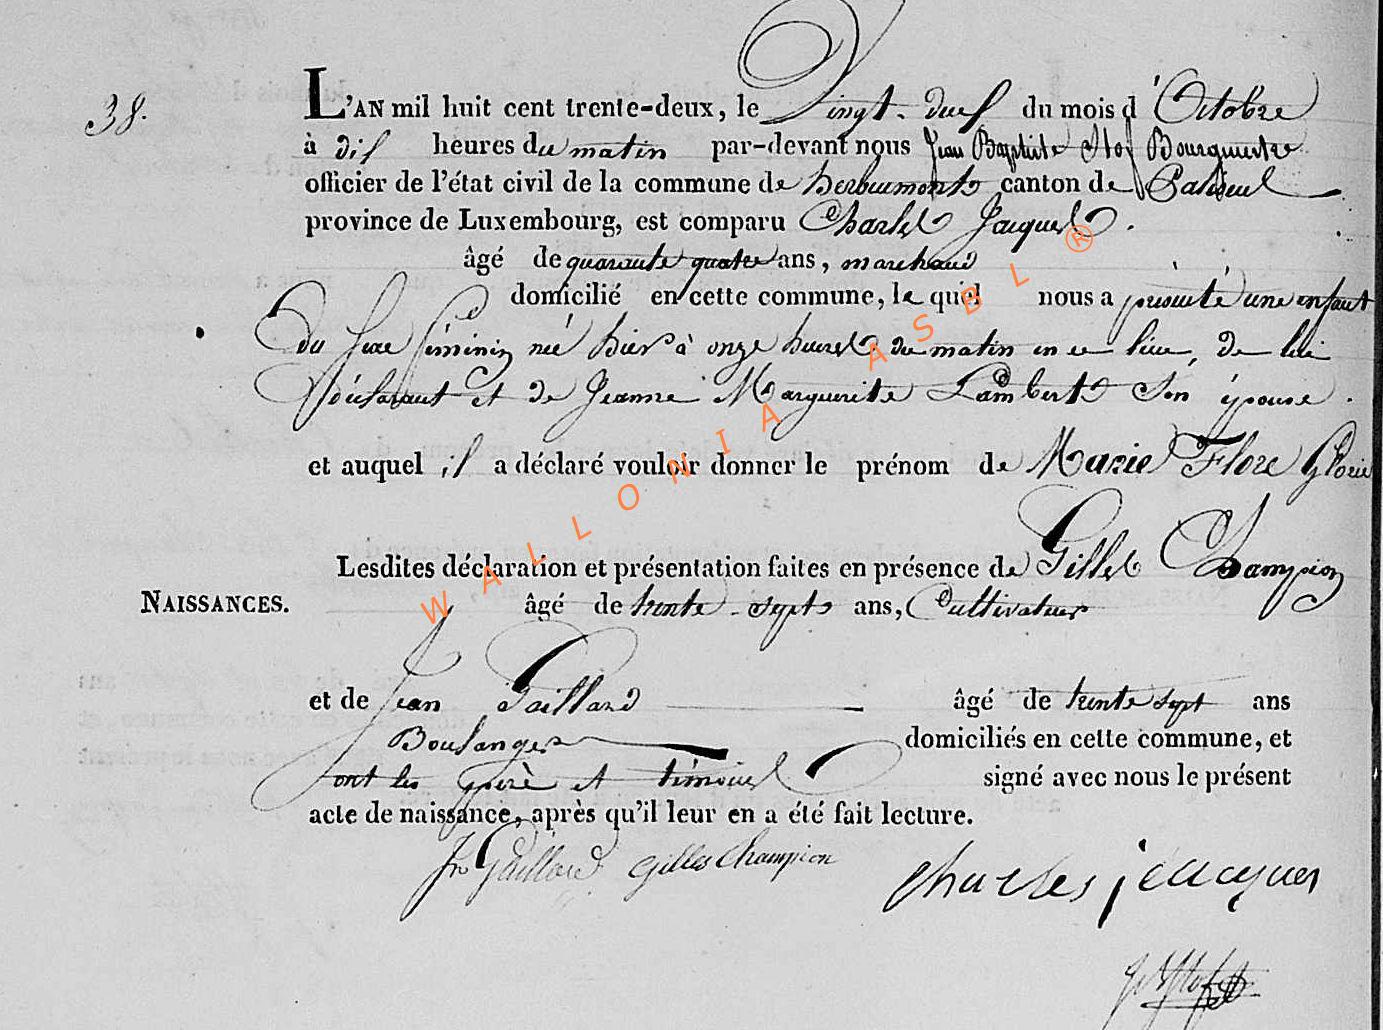 38.
L'AN mil huit cent trente-deux, le Vingt-deux du mois d'Octobre
à dix heures du matin par-devant nous Jean Baptiste Stof Bourgmestre
officier de l'état civil de la commune de herbeumont canton de Paliseul
province de Luxembourg, est comparu Charles Jacques.
âgé de quarante quatre ans, marchand
domicilié en cette commune, le quel nous a présenté une enfant
du sexe féminin née hier à onze heures du matin en ce lieu, de lui
déclarant et de Jeanne Marguerite Lambert son épouse.
et auquel il a déclaré vouloir donner le prénom de Marie Flore Glorie
Lesdites déclaration et présentation faites en présence de Gilles Champion
NAISSANCES.
âgé de trente-sept ans, Cultivateur
et de Jean Gaillard âgé de trente sept ans
Boulanger domiciliés en cette commune, et
ont les père et témoins signé avec nous le présent
acte de naissance, après qu'il leur en a été fait lecture.
Gaillard gilles Champion charles jacques
WALLONIA ASBL ®